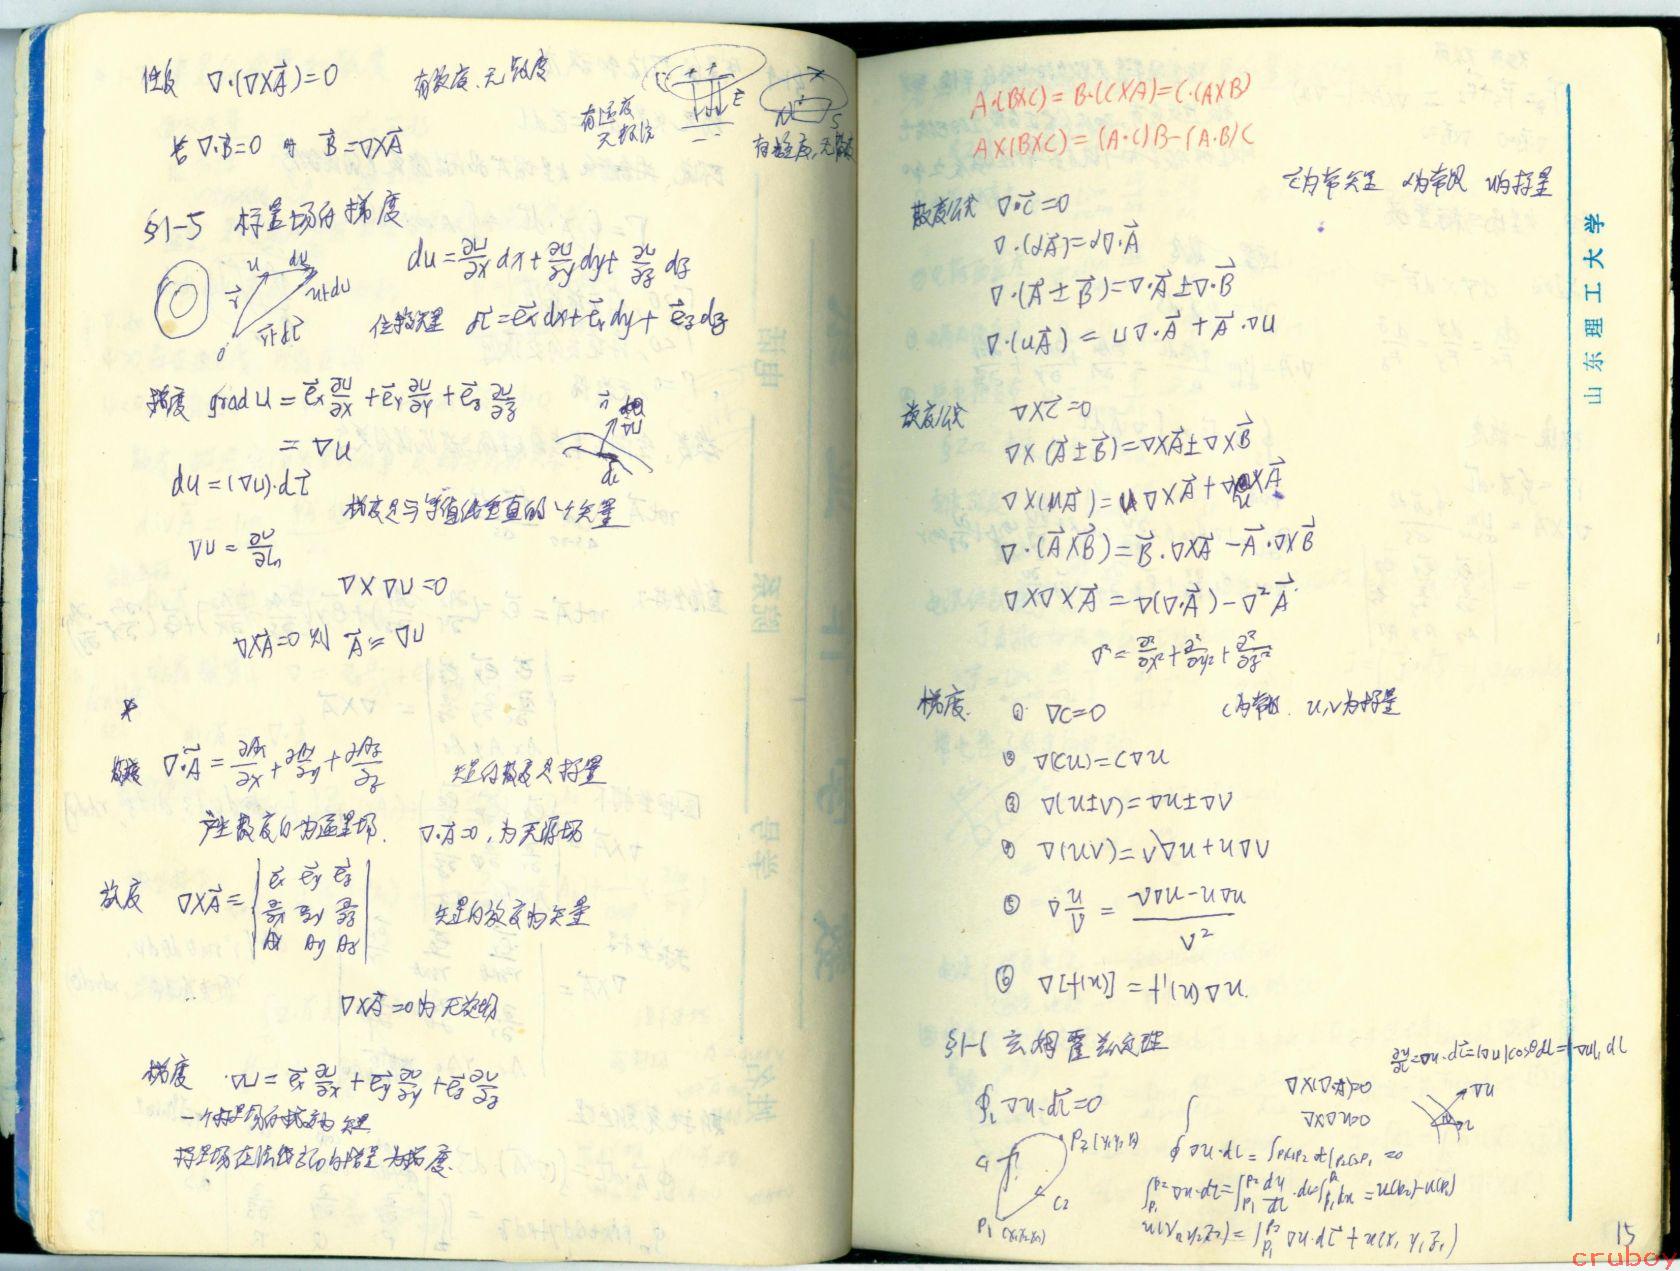 性质 ∇·(∇×A⃗)=0 有旋度、无散度
有旋度 无散度
若 ∇·B⃗=0 则 B⃗=∇×A⃗
§1-5 标量场的梯度
du=∂u/∂x dx+∂u/∂y dy+∂u/∂z dz
位移矢量 dl⃗=e⃗x dx+e⃗y dy+e⃗z dz
梯度 grad u = e⃗x ∂u/∂x + e⃗y ∂u/∂y + e⃗z ∂u/∂z
= ∇u
du=(∇u)·dl⃗
梯度是与等值线垂直的一个矢量
∇u = ∂u/∂ln
∇×∇u=0
∇×A⃗=0 则 A⃗=∇u
散度 ∇·A⃗ = ∂Ax/∂x + ∂Ay/∂y + ∂Az/∂z 矢量的散度是标量
产生散度的为通量场. ∇·A⃗=0, 为无源场
旋度 ∇×A⃗ = | e⃗x e⃗y e⃗z |
| ∂/∂x ∂/∂y ∂/∂z |
| Ax Ay Az | 矢量的旋度为矢量
∇×A⃗=0为无旋场
梯度 ∇u = e⃗x ∂u/∂x + e⃗y ∂u/∂y + e⃗z ∂u/∂z
A·(B×C)=B·(C×A)=C·(A×B)
A×(B×C)=(A·C)B-(A·B)C
c⃗为常矢量 α为常数 u为标量
散度公式 ∇·c⃗=0
∇·(αA⃗)=α∇·A⃗
∇·(A⃗±B⃗)=∇·A⃗±∇·B⃗
∇·(uA⃗)=u∇·A⃗+A⃗·∇u
旋度公式 ∇×c⃗=0
∇×(A⃗±B⃗)=∇×A⃗±∇×B⃗
∇×(uA⃗)=u∇×A⃗+∇u×A⃗
∇·(A⃗×B⃗)=B⃗·∇×A⃗-A⃗·∇×B⃗
∇×∇×A⃗=∇(∇·A⃗)-∇²A⃗
∇²=∂²/∂x²+∂²/∂y²+∂²/∂z²
梯度. ① ∇c=0 c为常数. u,v为标量
② ∇(cu)=c∇u
③ ∇(u±v)=∇u±∇v
④ ∇(uv)=v∇u+u∇v
⑤ ∇ u/v = (v∇u-u∇u)/v²
⑥ ∇[f(u)]=f'(u)∇u.
§1-6 亥姆霍兹定理
∂u/∂l=∇u·dl⃗=|∇u|cosθdl=∇u|l dl
∮l ∇u·dl⃗=0
∇×(∇·A)=0
∇×∇u=0
∇u
P2
C1
C2
P1
∮∇u·dl=∫P1C1P2+∫P2C2P1=0
∫P1 P2 ∇u·dl⃗=∫P1 P2 du/dl·dl=∫P1 P2 du=u(P2)-u(P1)
u(x2,y2,z2)=∫P1 P2 ∇u·dl⃗+u(x1,y1,z1)
山东理工大学
15
cruboy